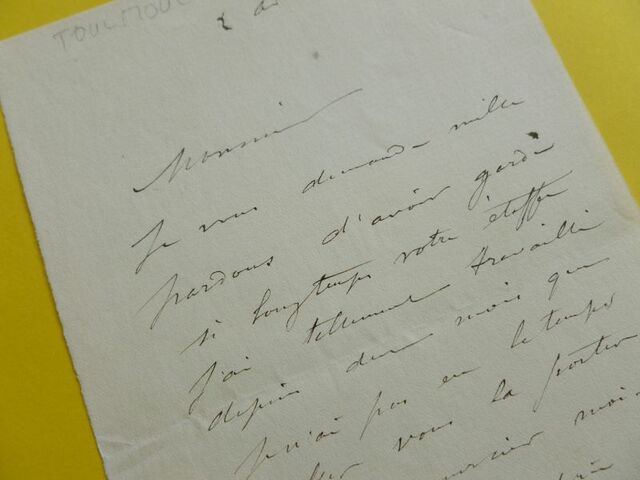 TOULMOUC
Monsieur
Je vous demande mille
pardons d'avoir gardé
si longtemps votre étoffe
J'ai tellement travaillé
depuis deux mois que
Je n'ai pas eu le temps
vous la porter
moi-